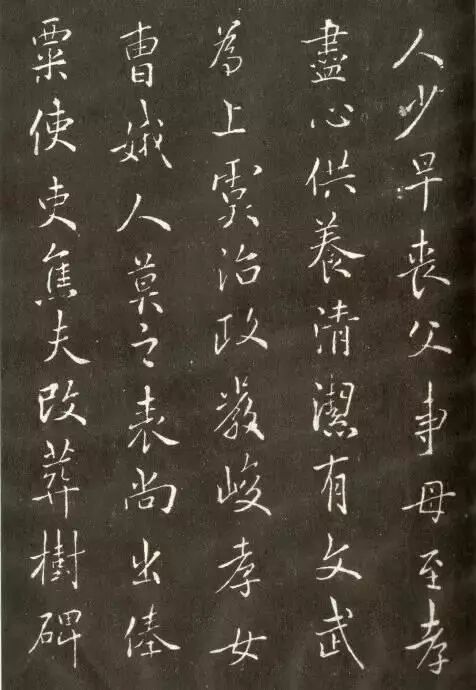 人少早喪父事母至孝
盡心供養清潔有文武
為上虞治政嚴峻孝女
曹娥人莫之表尚出俸
粟使吏焦夫改葬樹碑